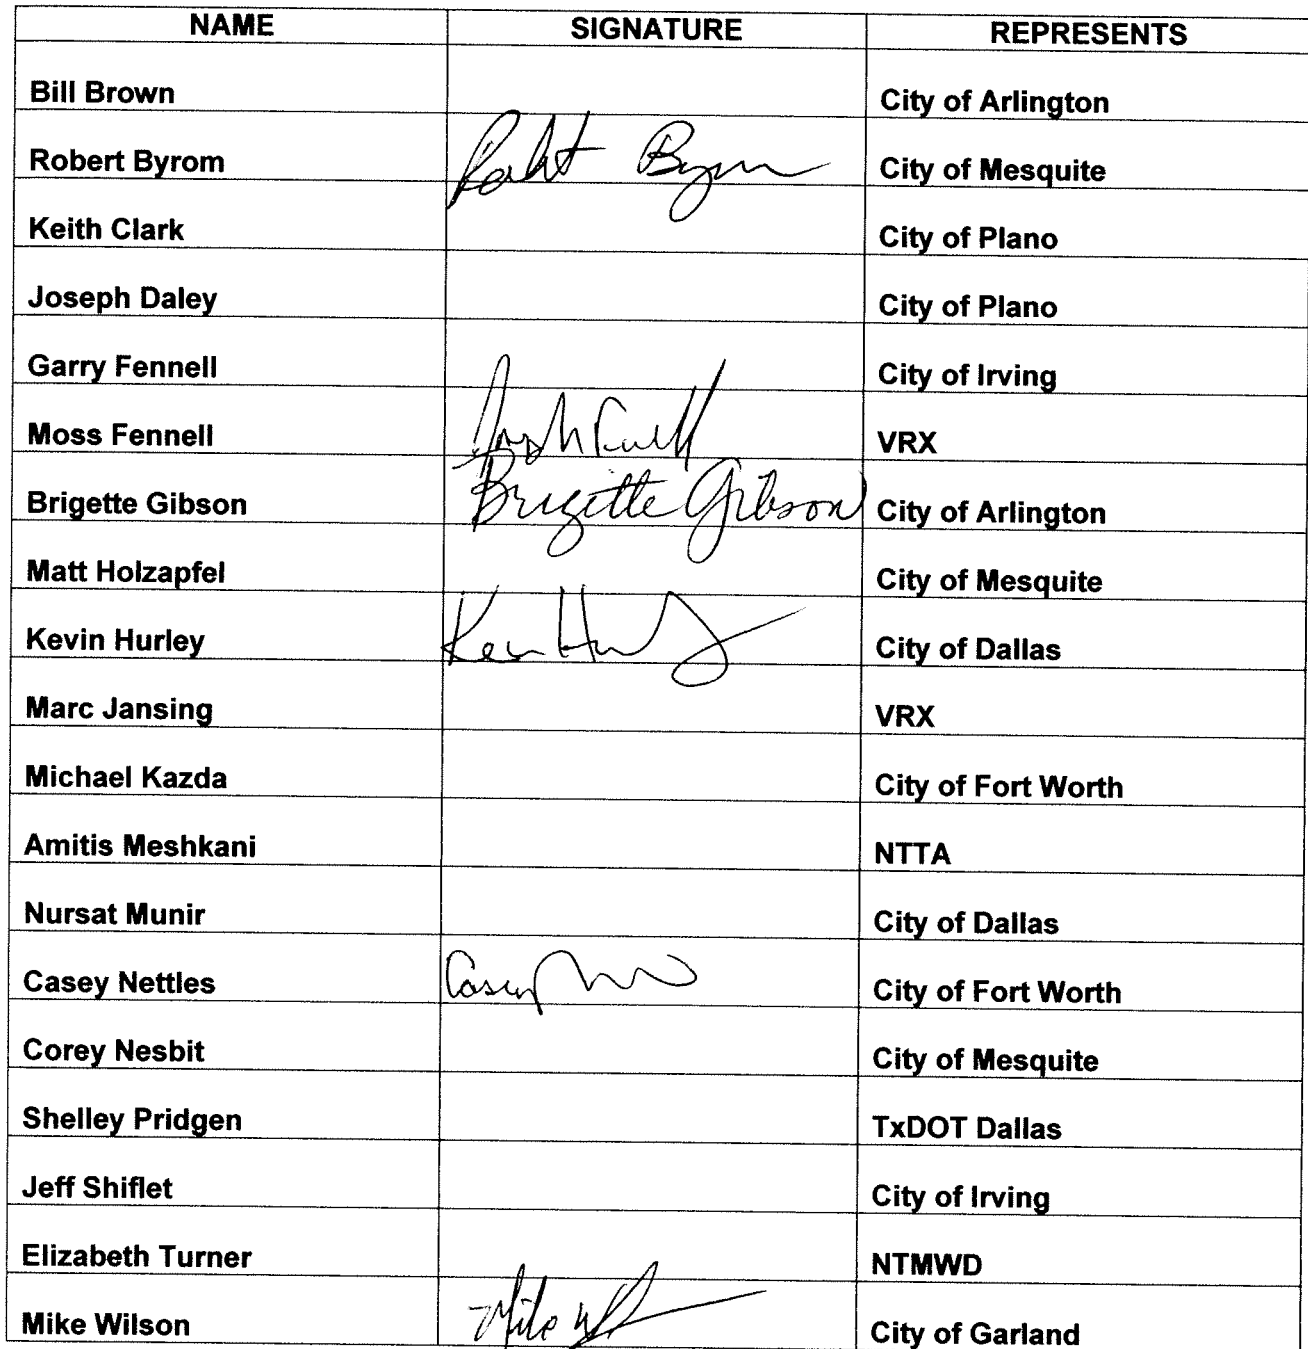 NAME SIGNATURE REPRESENTS
Bill Brown City of Arlington
Robert Byrom Robert Byrom City of Mesquite
Keith Clark City of Plano
Joseph Daley City of Plano
Garry Fennell City of Irving
Moss Fennell VRX
Brigette Gibson Brigette Gibson City of Arlington
Matt Holzapfel City of Mesquite
Kevin Hurley City of Dallas
Marc Jansing VRX
Michael Kazda City of Fort Worth
Amitis Meshkani NTTA
Nursat Munir City of Dallas
Casey Nettles Casey City of Fort Worth
Corey Nesbit City of Mesquite
Shelley Pridgen TxDOT Dallas
Jeff Shiflet City of Irving
Elizabeth Turner NTMWD
Mike Wilson Mike City of Garland